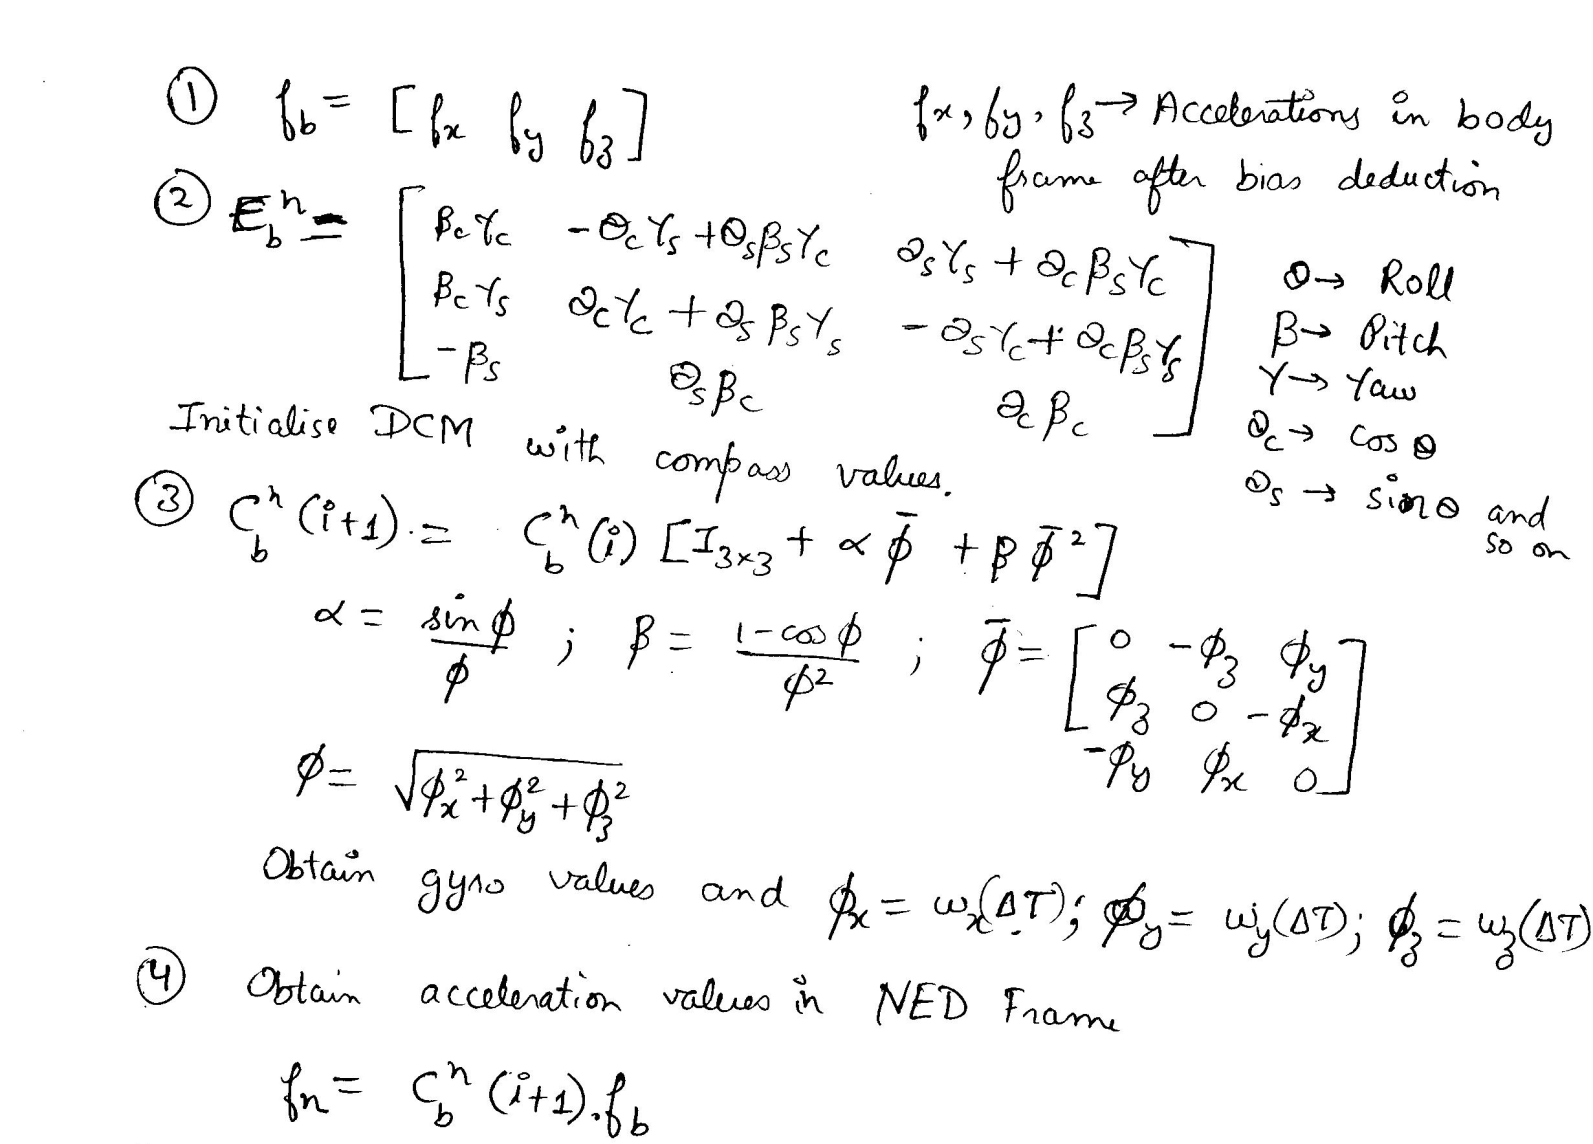 ① f_b = [f_x f_y f_z]
f_x, f_y, f_z → Accelerations in body
frame after bias deduction
② E_b^n = [β_cγ_c   -θ_cγ_s + θ_sβ_sγ_c   θ_sγ_s + θ_cβ_sγ_c
β_cγ_s   θ_cγ_c + θ_sβ_sγ_s   -θ_sγ_c + θ_cβ_sγ_s
-β_s   θ_sβ_c   θ_cβ_c]
θ → Roll
β → Pitch
γ → Yaw
θ_c → cos θ
θ_s → sin θ and
so on
Initialise DCM with compass values.
③ C_b^n (i+1) = C_b^n (i) [I_3×3 + α φ̄ + β φ̄²]
α = sin φ / φ ; β = 1-cos φ / φ² ; φ̄ = [0 -φ_z φ_y
φ_z 0 -φ_x
-φ_y φ_x 0]
φ = √(φ_x² + φ_y² + φ_z²)
Obtain gyro values and φ_x = ω_x(ΔT); φ_y = ω_y(ΔT); φ_z = ω_z(ΔT)
④ Obtain acceleration values in NED Frame
f_n = C_b^n (i+1).f_b